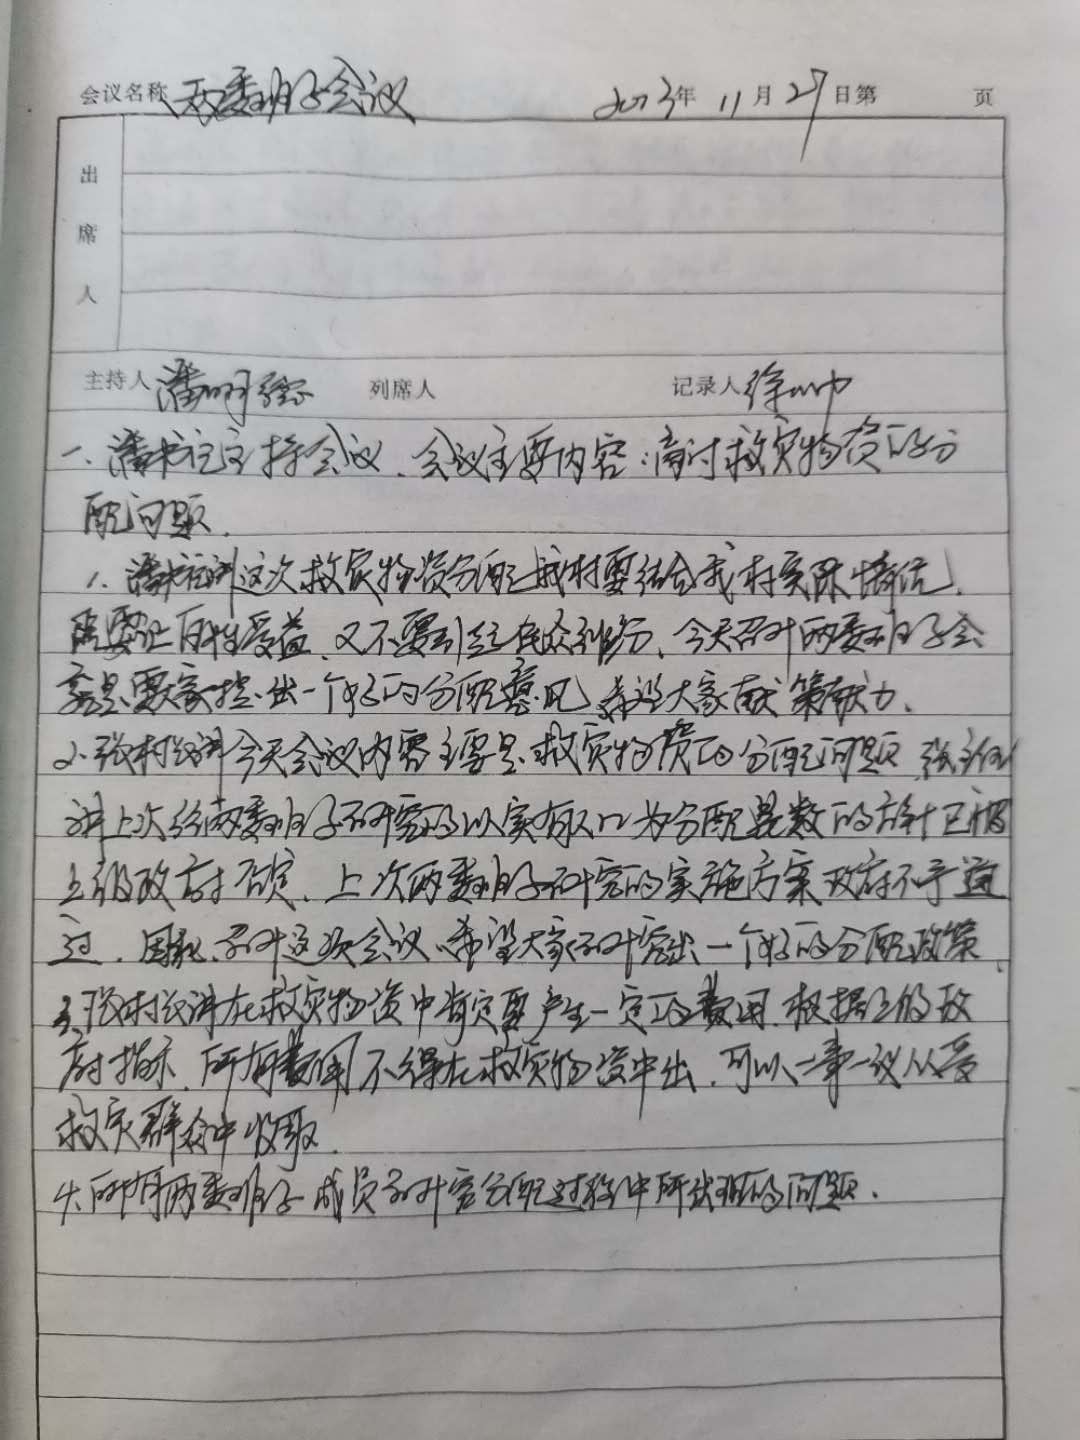 会议名称 两委班子会议 2023年 11月 27日第 页
出
席
人
主持人 潘明 列席人 记录人 徐帅
一、潘书记主持会议、会议主要内容：商讨救灾物资的分
配问题.
1. 潘书记讲这次救灾物资分配我村要结合我村实际情况,
既要让百姓受益、又不要引起民众纠纷、今天召开两委班子会
就是要大家拿出一个好的分配意见,希望大家献策献力.
2. 张村长讲今天会议内容主要是救灾物资的分配问题 张主任
讲上次经两委班子研究的以实有人口为分配基数的方针已被
上级政府否定、上次两委班子研究的实施方案政府不予通
过.因此、召开这次会议、希望大家研究出一个好的分配政策、
3. 张村长讲在救灾物资中肯定要产生一定的费用.根据上级政
府指示、所有费用不得在救灾物资中出、可以一事一议从受
救灾群众中收取.
4. 所有两委班子成员研究分配过程中所出现的问题.